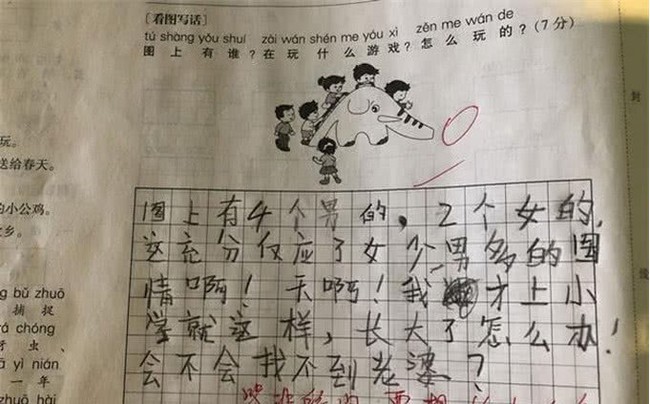 [看图写话]
tú shàng yǒu shuí zài wán shén me yóu xì zěn me wán de
图上有谁?在玩什么游戏?怎么玩的?(7分)
玩。
送给春天。
的小公鸡。
乡。
bǔ zhuō
捕捉
chóng
虫、
yì nián
一年
zhuō hài
图上有4个男的,2个女的,
这充分仅应了女少男多的国
情啊!天啊!我才上小
学就这样,长大了怎么办!
会不会找不到老婆?